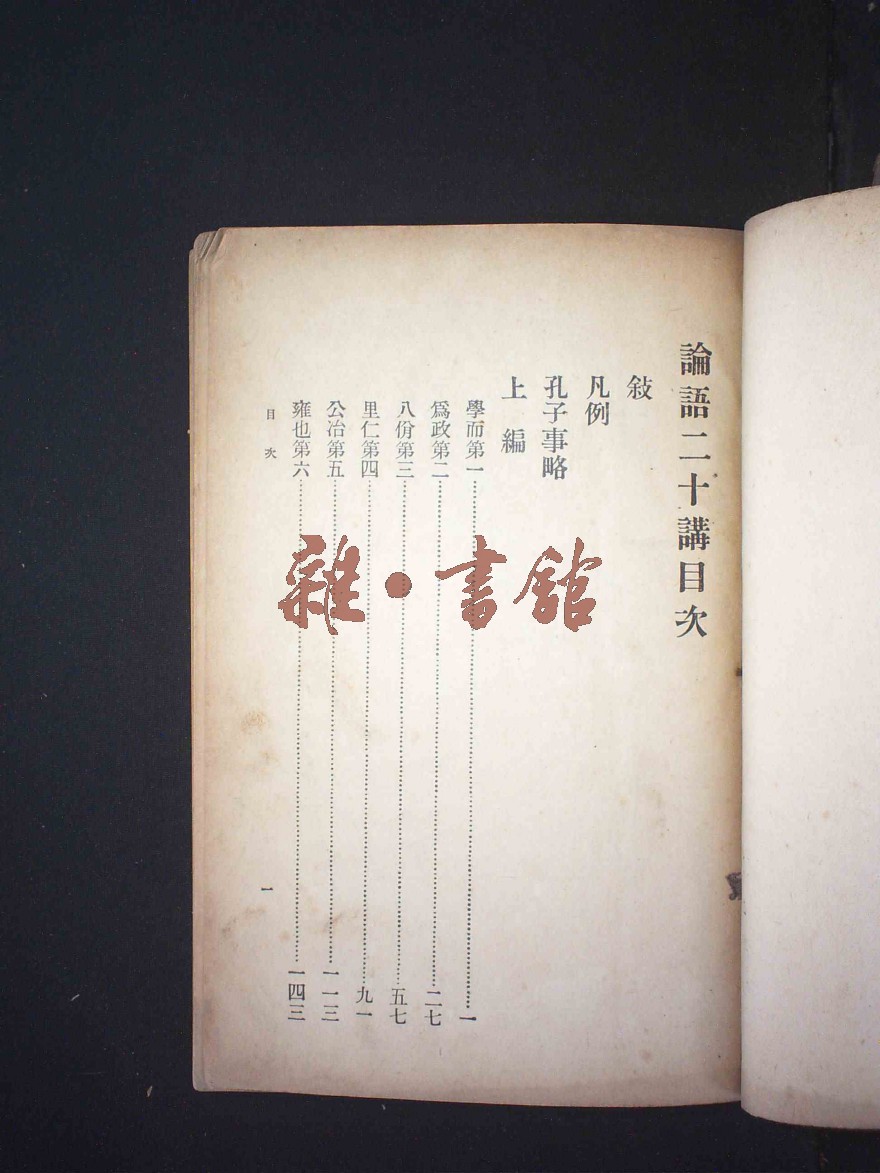 論語二十講目次
敍
凡例
孔子事略
上編
學而第一……一
爲政第二……二七
八佾第三……五七
里仁第四……九一
公冶第五……一一三
雍也第六……一四三
目次
一
雜·書館